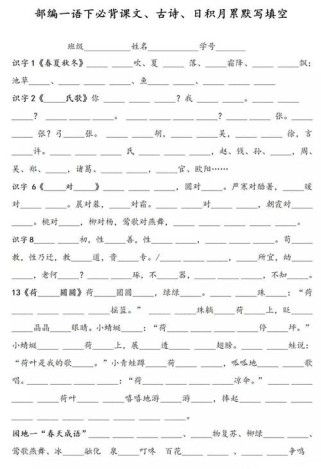 部编一语下必背课文、古诗、日积月累默写填空
班级____________姓名____________学号________
识字1《春夏秋冬》____ ____ ____吹、夏 ____ ____ 落、____霜降、____ ____飘;
池草____、____ ____ ____、鱼____ ____、____ ____ ____。
识字2《____ ____氏歌》你 ____ ____ ____ ____? 我 ____ ____ ____。____ ____
____? ____ ____ ____。____ ____ ____? ____ ____ ____张。____
____ ____张?弓____ ____。____ ____胡,____ ____吴,____ ____徐,言
____许。____ ____ ____ ____ 氏 ____ ____ ____ ____,赵、钱、孙、____,周、
吴、郑、____,诸葛、____ ____,____官、欧阳……
识字 6《____对____》____ ____ ____,圆对____ ____。严寒对酷暑,____暖
对____ ____。晨对暮,____对霜。____ ____对____ ____,朝霞对____
____。桃对____,柳对杨,莺歌对燕舞,____ ____ ____ ____ ____。
识字8____ ____初,性____善,性____ ____,____ ____ ____。苟____
教,性乃迁,教____道,贵____专。/____ ____ ____ ____,____所宜,幼____
____,老何____?____ ____琢,不____器,____ ____ ____,不知____。
13《荷____圆圆》荷____圆圆____,绿绿____。____ ____珠____:“荷
____ ____ ____ ____摇篮。” ____ ____珠躺____荷____ ____上,眨____
____晶晶____眼睛。小蜻蜓____:“荷____ ____ ____ ____停____坪。”
小蜻蜓____ ____荷____ ____上,展____透____ ____翅膀。____ ____蛙说:
“荷叶是我的歌____。”小青蛙蹲____荷____ ____,呱呱地____ ____歌
唱。____ ____ ____:“荷____ ____ ____ ____凉伞。” ____ ____ ____
____荷叶____ ____嘻嘻地游____游____,捧起____ ____ ____ ____ ____
____。
园地一“春天成语”____ ____ ____ ____、____ ____ ____ ____、物复苏、柳绿____
____、莺歌燕舞、冰____融化 泉____叮咚 百花____ ____ ____ ____争鸣